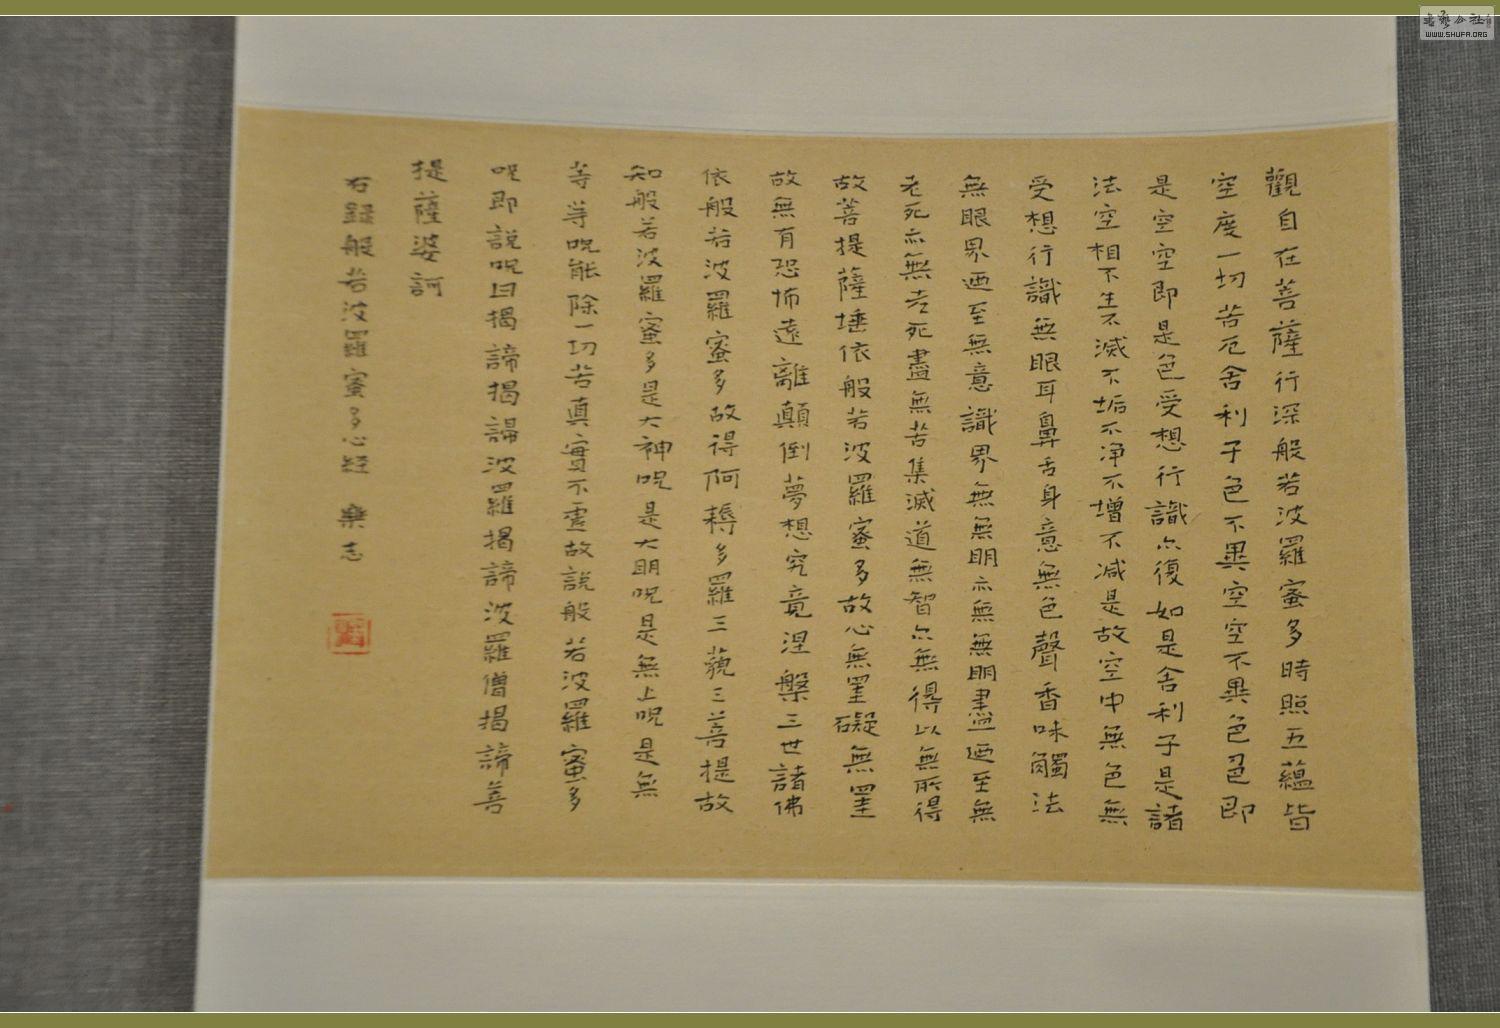 觀自在菩薩行深般若波羅蜜多時照五蘊皆
空度一切苦厄舍利子色不異空空不異色色即
是空空即是色受想行識亦復如是舍利子是諸
法空相不生不滅不垢不淨不增不減是故空中無色無
受想行識無眼耳鼻舌身意無色聲香味觸法
無眼界迺至無意識界無無明亦無無明盡迺至無
老死亦無老死盡無苦集滅道無智亦無得以無所得
故菩提薩埵依般若波羅蜜多故心無罣礙無罣
故無有恐怖遠離顛倒夢想究竟涅槃三世諸佛
依般若波羅蜜多故得阿耨多羅三藐三菩提故
知般若波羅蜜多是大神呪是大明呪是無上呪是無
等等呪能除一切苦真實不虛故說般若波羅蜜多
呪即說呪曰揭諦揭諦波羅揭諦波羅僧揭諦菩
提薩婆訶
右錄般若波羅蜜多心經 樂志
WWW.SHUFA.ORG